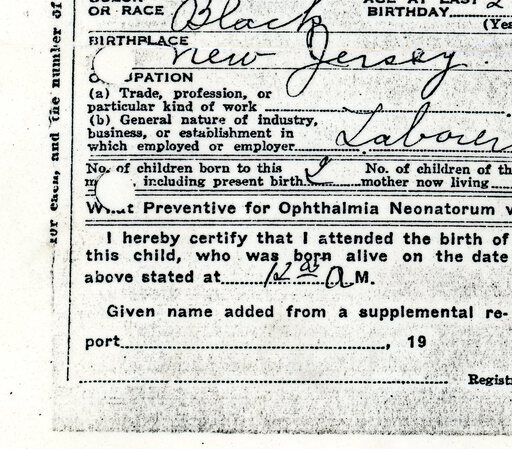 COLOR AGE AT LAST 2
OR RACE Black BIRTHDAY (Yea
BIRTHPLACE
New Jersey.
OCCUPATION
(a) Trade, profession, or
particular kind of work
(b) General nature of industry,
business, or establishment in
which employed or employer Laborer
No. of children born to this No. of children of th
m , including present birth mother now living
What Preventive for Ophthalmia Neonatorum w
I hereby certify that I attended the birth of
this child, who was born alive on the date
above stated at 12 a M.
Given name added from a supplemental re-
port , 19
Registr
for each, and the number of